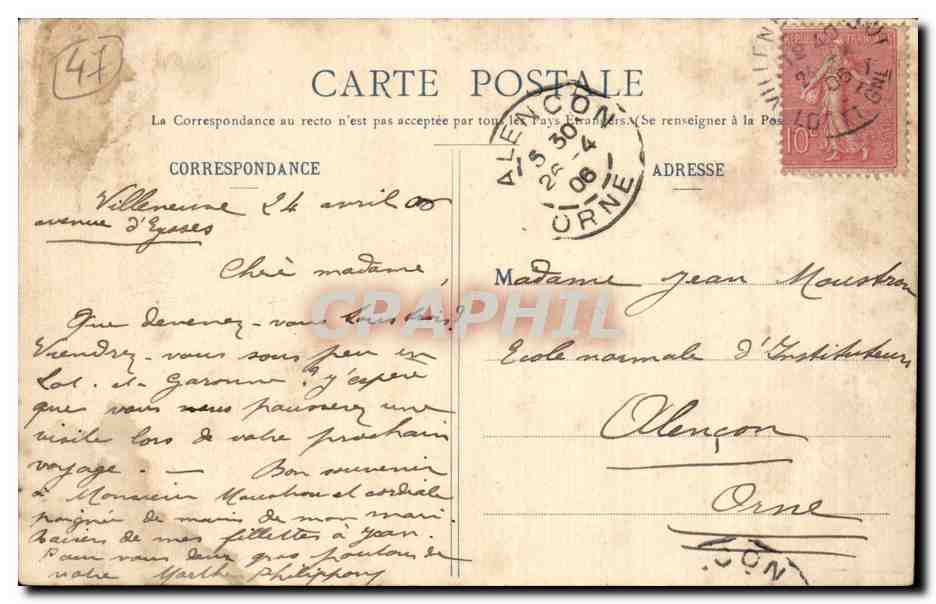 47
CARTE POSTALE
La Correspondance au recto n'est pas acceptée par tous les Pays Etrangers. (Se renseigner à la Pos
CORRESPONDANCE
ADRESSE
ALENÇON
5 30
4
06
ORNE
10
Villeneuve 24 avril 06
avenue d'Eysses
Chère madame,
Que devenez-vous tous trois?
Viendrez-vous sous peu en
Lot-et-Garonne? j'espère
que vous nous pousserez une
visite lors de votre prochain
voyage. — Bon souvenir
à Monsieur Moustrou et cordiale
poignée de mains de mon mari.
Baisers de mes fillettes à Jean.
Pour vous deux gros poutous de
votre Marthe Philippony
Madame Jean Moustrou
Ecole normale d'Instituteurs
Alençon
Orne
ÇON
CPAPHIL